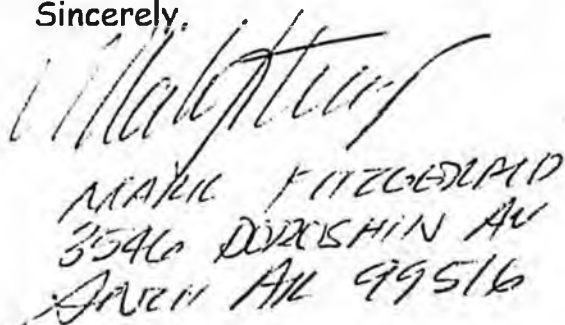 Sincerely,
MARK FITZGERALD
3546 DOROSHIN AV
ANCH AK 99516